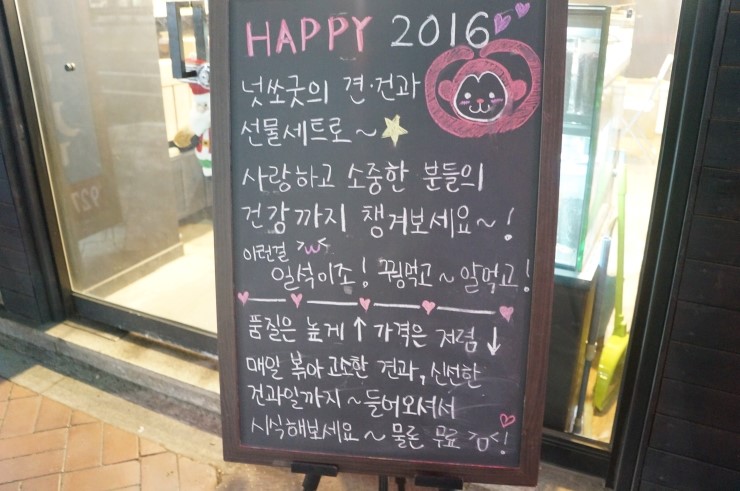 HAPPY 2016
넛쏘굿의 견·건과
선물세트로~
사랑하고 소중한 분들의
건강까지 챙겨보세요~!
이런걸 >w<
일석이조! 꿩먹고~알먹고!
품질은 높게↑가격은 저렴↓
매일 볶아 고소한 견과, 신선한
건과일까지~들어오셔서
시식해보세요~물론 무료 >o<!
927